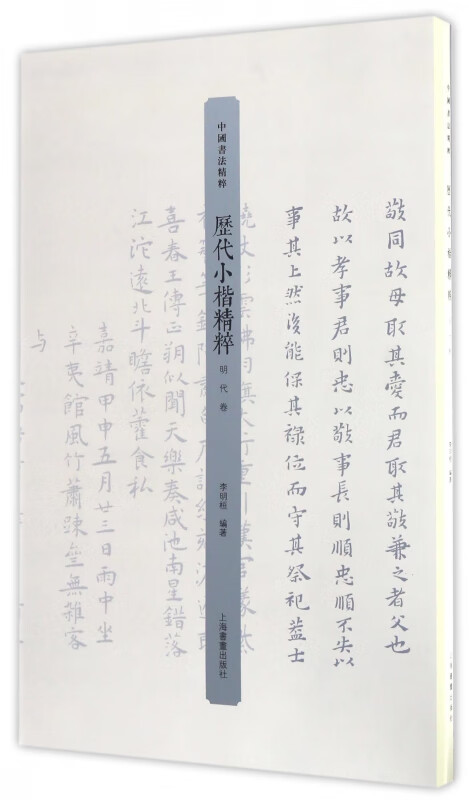 中國書法精粹
歷代小楷精粹
明代卷
李明桓 編著
上海書畫出版社
敬同故母取其愛而君取其敬兼之者父也
故以孝事君則忠以敬事長則順忠順不失以
事其上然後能保其祿位而守其祭祀蓋士
喜春王傳正朔似聞天樂奏咸池南星錯落
江沱遠北斗瞻依藿食私
嘉靖甲申五月廿三日雨中坐
辛夷館風竹蕭踈坐無雜客
与